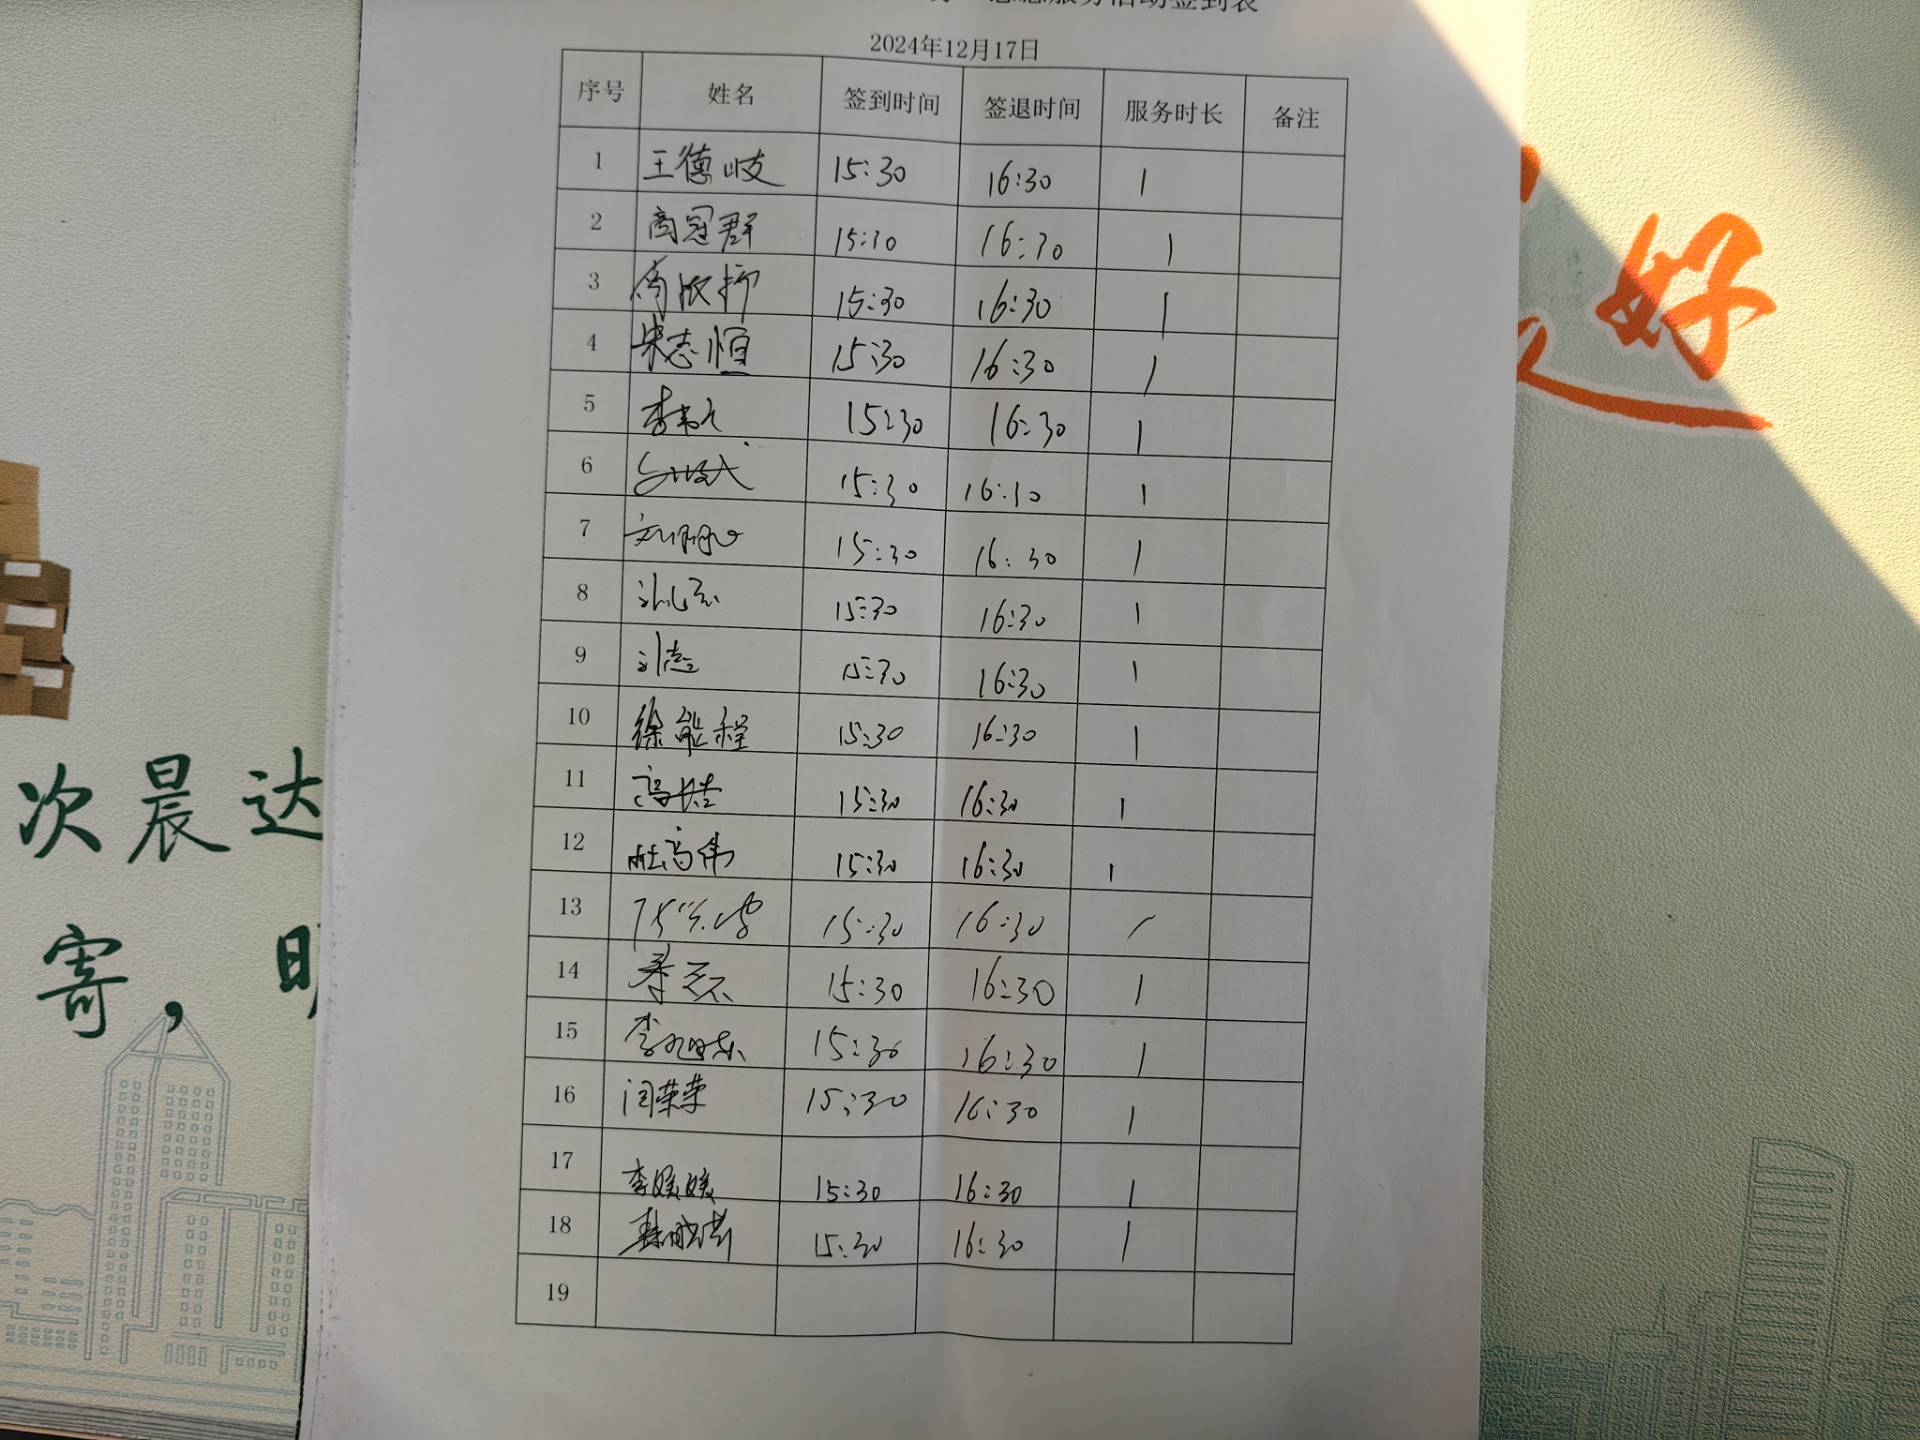 服务活动签到表
2024年12月17日
序号 姓名 签到时间 签退时间 服务时长 备注
1 王德岐 15:30 16:30 1
2 商冠群 15:30 16:30 1
3 15:30 16:30 1
4 宋志恒 15:30 16:30 1
5 李 15:30 16:30 1
6 15:30 16:30 1
7 刘 15:30 16:30 1
8 15:30 16:30 1
9 15:30 16:30 1
10 徐能程 15:30 16:30 1
11 高 15:30 16:30 1
12 杜高伟 15:30 16:30 1
13 15:30 16:30 1
14 15:30 16:30 1
15 李旭东 15:30 16:30 1
16 闫荣荣 15:30 16:30 1
17 李媛媛 15:30 16:30 1
18 15:30 16:30 1
19
好
次晨达
寄，明